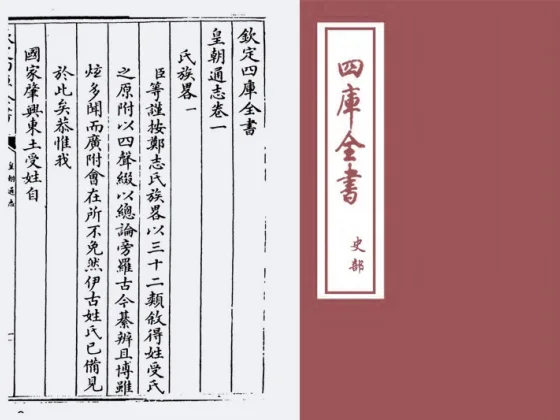 欽定四庫全書
皇朝通志卷一
氏族畧一
臣等謹按鄭志氏族畧以三十二類敘得姓受氏
之原附以四聲綴以總論旁羅古今綦辨且博雖
炫多聞而廣附會在所不免然伊古姓氏已備見
於此矣恭惟我
國家肇興東土受姓自
皇朝通志
一
四庫全書
史部